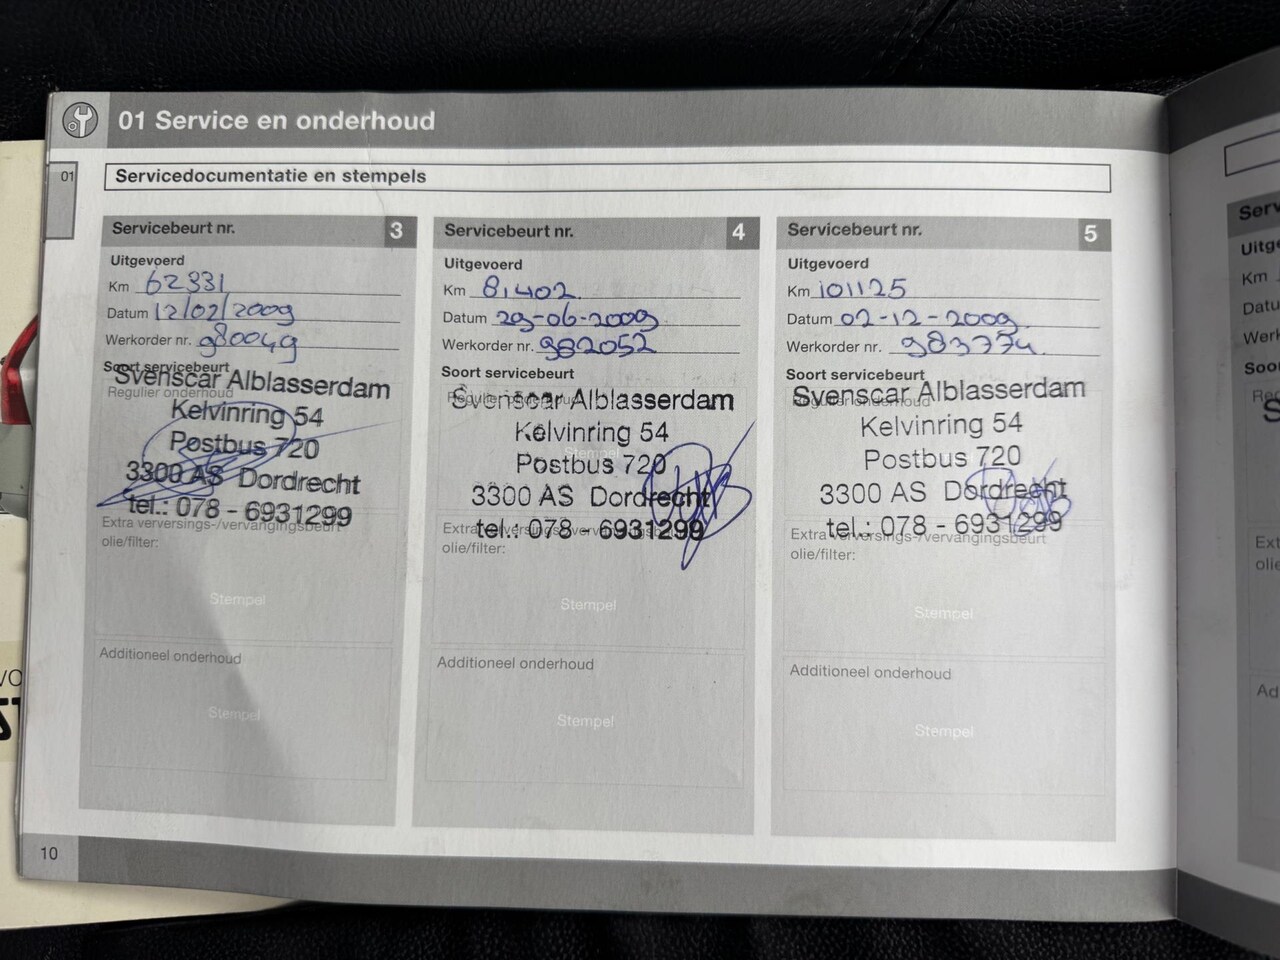 01 Service en onderhoud
01
Servicedocumentatie en stempels
Servicebeurt nr. 3
Uitgevoerd
Km 62331
Datum 12/02/2009
Werkorder nr. 980049
Soort servicebeurt
Regulier onderhoud
Svenscar Alblasserdam
Kelvinring 54
Postbus 720
3300 AS Dordrecht
tel.: 078 - 6931299
Extra verversings-/vervangingsbeurt
olie/filter:
Stempel
Additioneel onderhoud
Stempel
Servicebeurt nr. 4
Uitgevoerd
Km 81402
Datum 29-06-2009
Werkorder nr. 982052
Soort servicebeurt
Regulier onderhoud
Svenscar Alblasserdam
Kelvinring 54
Stempel
Postbus 720
3300 AS Dordrecht
tel.: 078 - 6931299
Extra verversings-/vervangingsbeurt
olie/filter:
Stempel
Additioneel onderhoud
Stempel
Servicebeurt nr. 5
Uitgevoerd
Km 101125
Datum 02-12-2009
Werkorder nr. 983774
Soort servicebeurt
Regulier onderhoud
Svenscar Alblasserdam
Kelvinring 54
Postbus 720
3300 AS Dordrecht
tel.: 078 - 6931299
Extra verversings-/vervangingsbeurt
olie/filter:
Stempel
Additioneel onderhoud
Stempel
10
Serv
Uitge
Km
Datu
Werk
Soo
Reg
S
Ext
olie
Ad